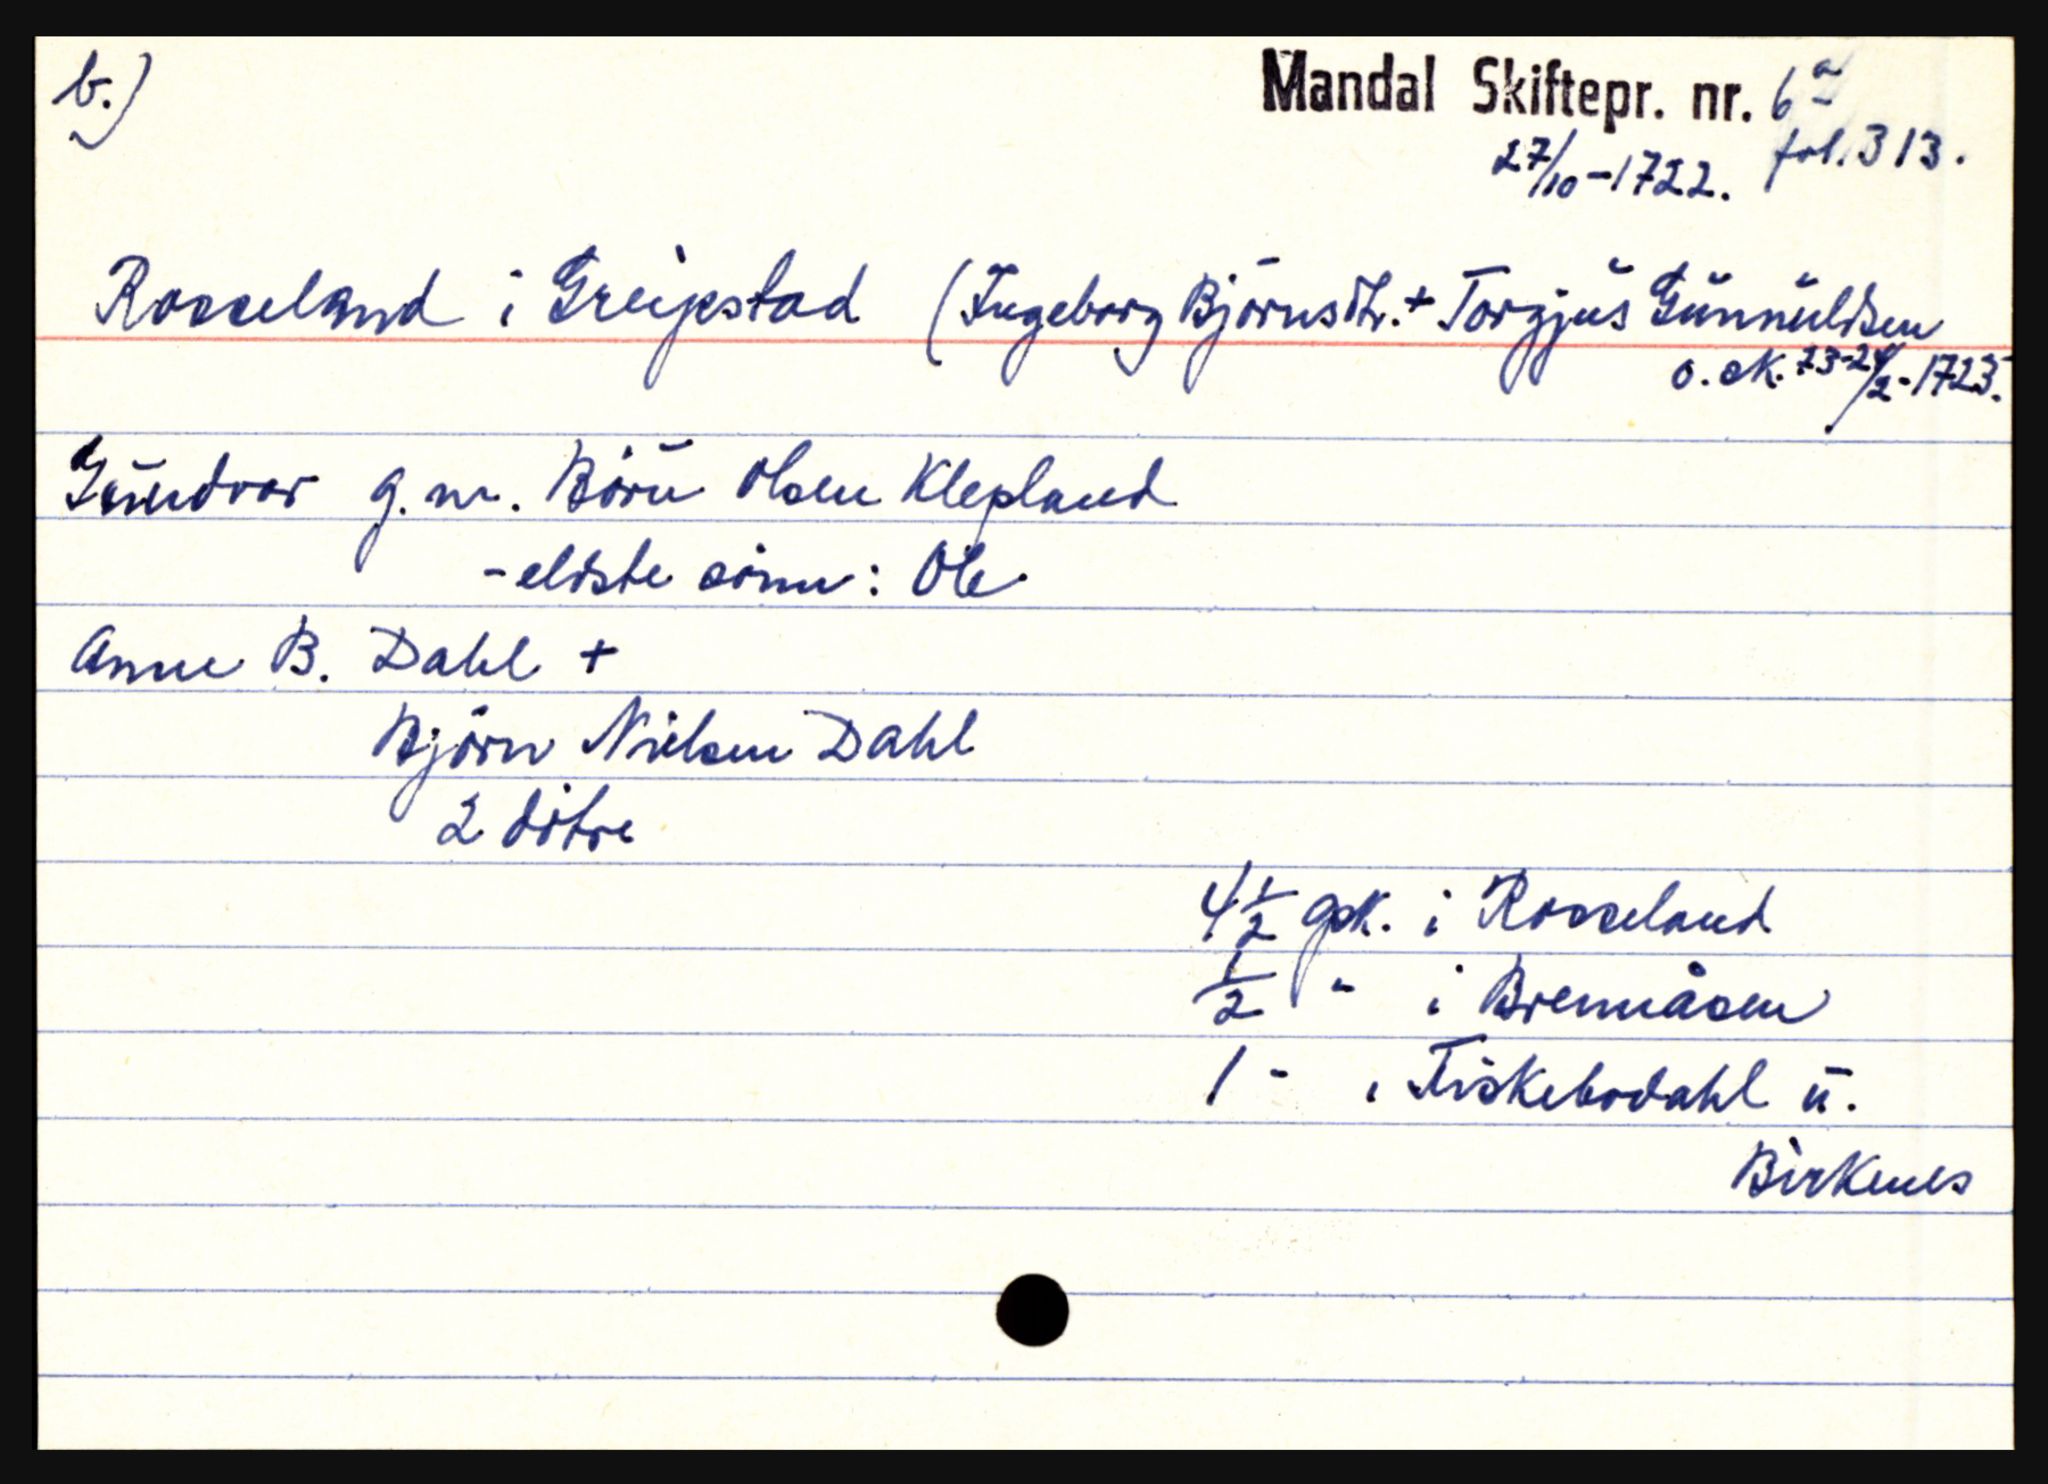 b.)
Mandal Skiftepr. nr. 6a
27/10-1722. fol. 313.
Rosseland i Greipstad (Ingeborg Björnsdtr. + Torgjus Gunnuldsen
o. sk. 23-24/2-1723.
Gundvor g.m. Börn Olsen Klepland
- eldste sönn: Ole
Anne B. Dahl +
Björn Nielsen Dahl
2 dötre
4 1/2 gsk. i Rosseland
1/2 " i Brennåsen
1 - i Fiskebodahl u.
Birkenes